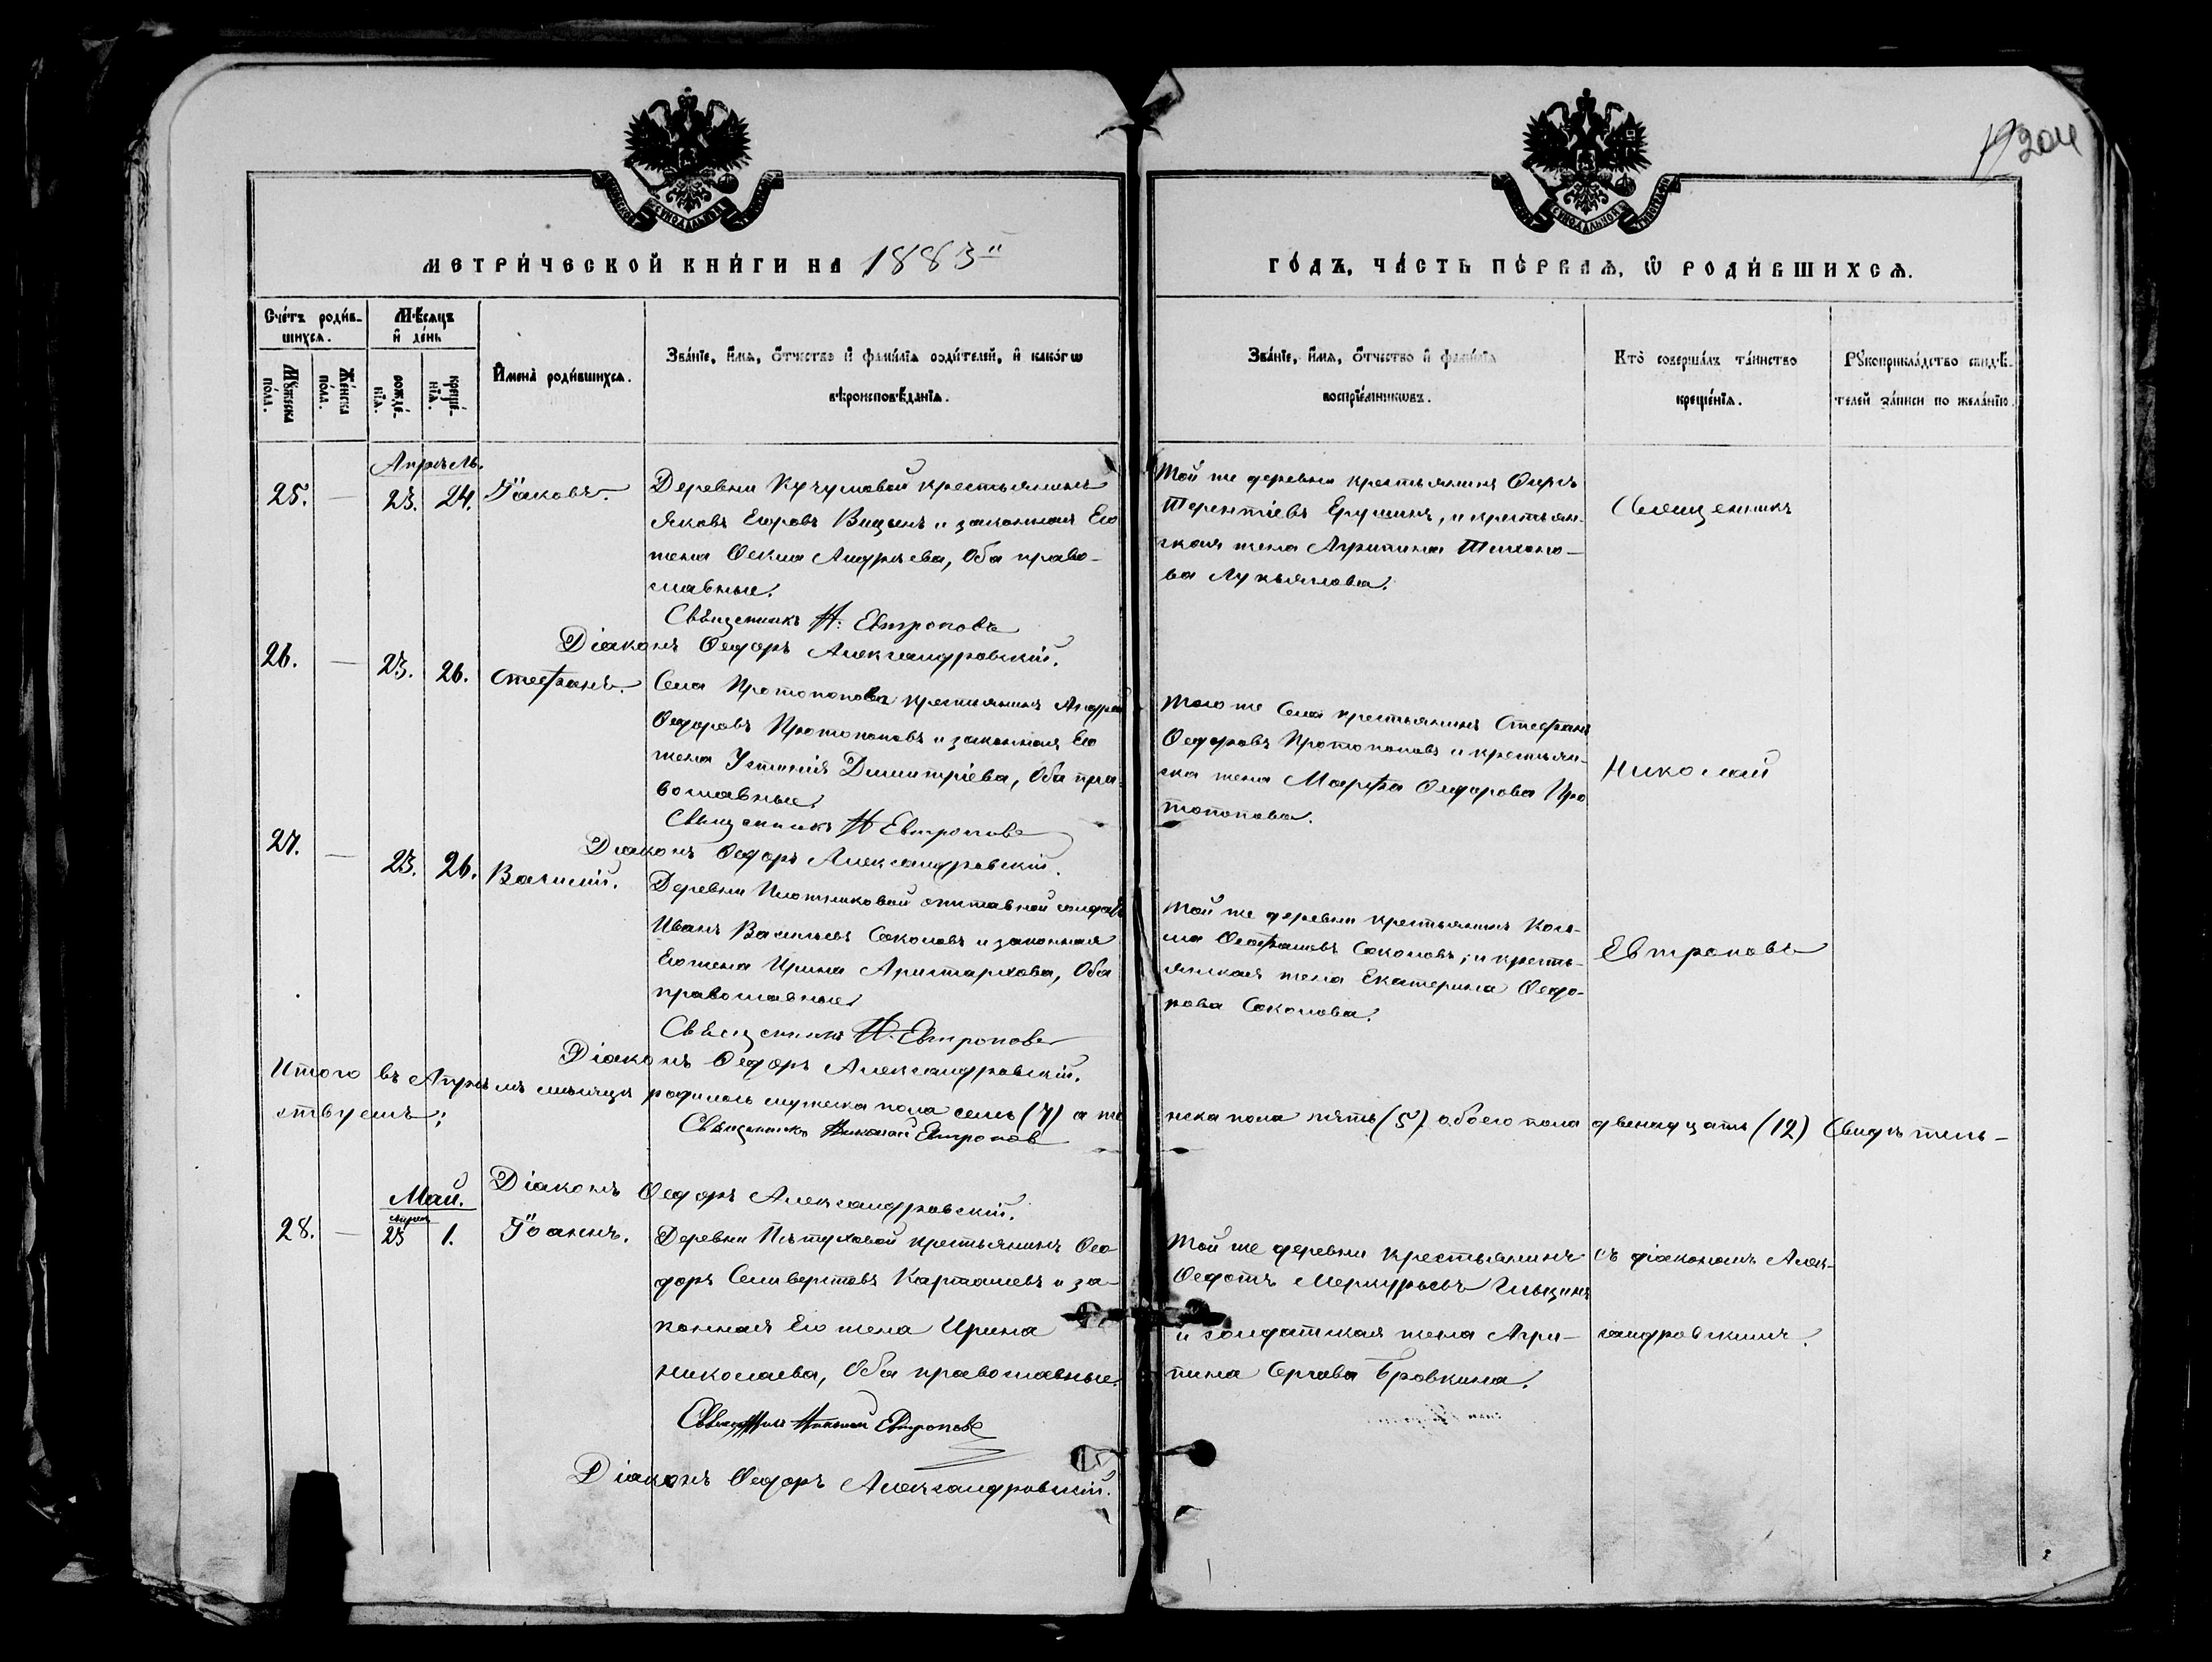 204
МЕТРИ́ЧЕСКОЙ КНИ́ГИ НА 1883й
ГО́ДЪ, ЧА́СТЬ ПЕ́РВАѦ, Ѡ҆ РОДИ́ВШИХСѦ.
Сче́тъ роди́вшихсѧ.
Мꙋ́жеска по́ла.
Же́нска по́ла.
Мѣ́сѧцъ и҆ де́нь
рожде́нїѧ.
креще́нїѧ.
И҆мена̀ роди́вшихсѧ.
Зва́нїе, и҆́мѧ, ѻ҆́тчество и҆ фами́лїѧ роди́телей, и҆ како́гѡ
вѣроисповѣ́данїѧ.
Зва́нїе, и҆́мѧ, ѻ҆́тчество и҆ фами́лїѧ
воспрїе́мникѡвъ.
Кто̀ соверша́лъ та́инство
креще́нїѧ.
Рꙋкоприкла́дство свидѣ́-
телей за́писи по жела́нїю.
Апрѣль.
25. — 23. 24. Іаковъ.
Деревни Кучумовой крестьянинъ
Яковъ Егоровъ Вицынъ и законная Его
жена Ѳекла Андрѣева, Оба право-
славные.
Священникъ Н. Евтроповъ
Діаконъ Ѳедоръ Александровскій.
Той же деревни крестьянинъ
Терентіевъ Ерушинъ, и крестьян-
ская жена Агрипина Тихоно-
ва Лукьянова.
Священникъ
26. — 23. 26. Стефанъ.
Села Протопопова крестьянинъ Андрей
Ѳедоровъ Протопоповъ и законная Его
жена Устинія Димитріева, Оба пра-
вославные.
Священникъ Н Евтроповъ
Діаконъ Ѳедоръ Александровскій.
Того же Села крестьянинъ Стефанъ
Ѳедоровъ Протопоповъ и крестьян-
ска жена Марфа Ѳедорова Про
топопова.
Николай
27. — 23. 26. Василій.
Деревни Плотниковой отставной солдатъ
Иванъ Васильевъ Соколовъ и законная
Его жена Ирина Аристархова, Оба
православные
Священникъ Н. Евтроповъ
Діаконъ Ѳедоръ Александровскій.
Той же деревни крестьянинъ Кось-
ма Ѳеофановъ Соколовъ, и кресть-
янская жена Екатерина Ѳедо-
рова Соколова.
Евтроповъ
Итого въ Апрѣлѣ мѣсяцѣ родилось мужеска пола семь (7) а же нска пола пять (5) обоего пола двенадцать (12) Свидѣтель-
ствуемъ;
Священникъ Николай Евтропов
Діаконъ Ѳедоръ Александровскій.
Май.
Апрѣль
28. — 25 1. Іоаннъ.
Деревни Пѣтуховой крестьянинъ Ѳео
доръ Селиверстовъ Карташевъ и за-
конная Его жена Ирина
Николаева, Оба православные.
Священникъ Николай Евтроповъ
Діаконъ Ѳедоръ Александровскій.
Той же деревни крестьянинъ
Ѳедотъ Меркурьевъ
и солдатская жена Агри-
пина Сергіева Бровкина.
съ діакономъ Алек-
сандровскимъ.